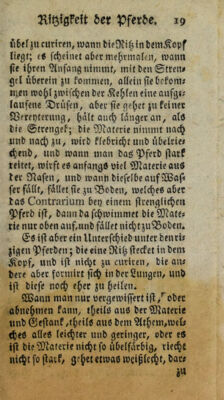 Ritzigkeit der Pferde. 19
übel zu curiren, wann die Ritz in dem Kopf
liegt; es scheinet aber mehrmalen, wann
sie ihren Anfang nimmt, mit den Stren-
gel überein zu kommen, allein sie bekom-
men wohl zwischen der Kehlen eine aufge-
lauffene Drüsen, aber sie gehet zu keiner
Vereyterung, hält auch länger an, als
die Strengel; die Materie nimmt nach
und nach zu, wird klebricht und übelrie-
chend, und wann man das Pferd stark
reitet, wirft es anfangs viel Materie aus
der Nasen, und wann dieselbe auf Was-
ser fällt, fället sie zu Boden, welches aber
das Contrarium bey einem strenglichen
Pferd ist, dann da schwimmet die Mate-
rie nur oben auf, und fället nicht zu Boden.
Es ist aber ein Unterschied unter den ri-
zigen Pferden; die eine Ritz stecket in dem
Kopf, und ist nicht zu curiren, die an-
dere aber formirt sich in der Lungen, und
ist diese noch eher zu heilen.
Wann man nur vergewissert ist, oder
abnehmen kann, theils aus der Materie
und Gestank, theils aus dem Athem, wel-
ches alles leichter und geringer, oder es
ist die Materie nicht so übelfärbig, riecht
nicht so stark, gehet etwas weißlecht, dar-
zu